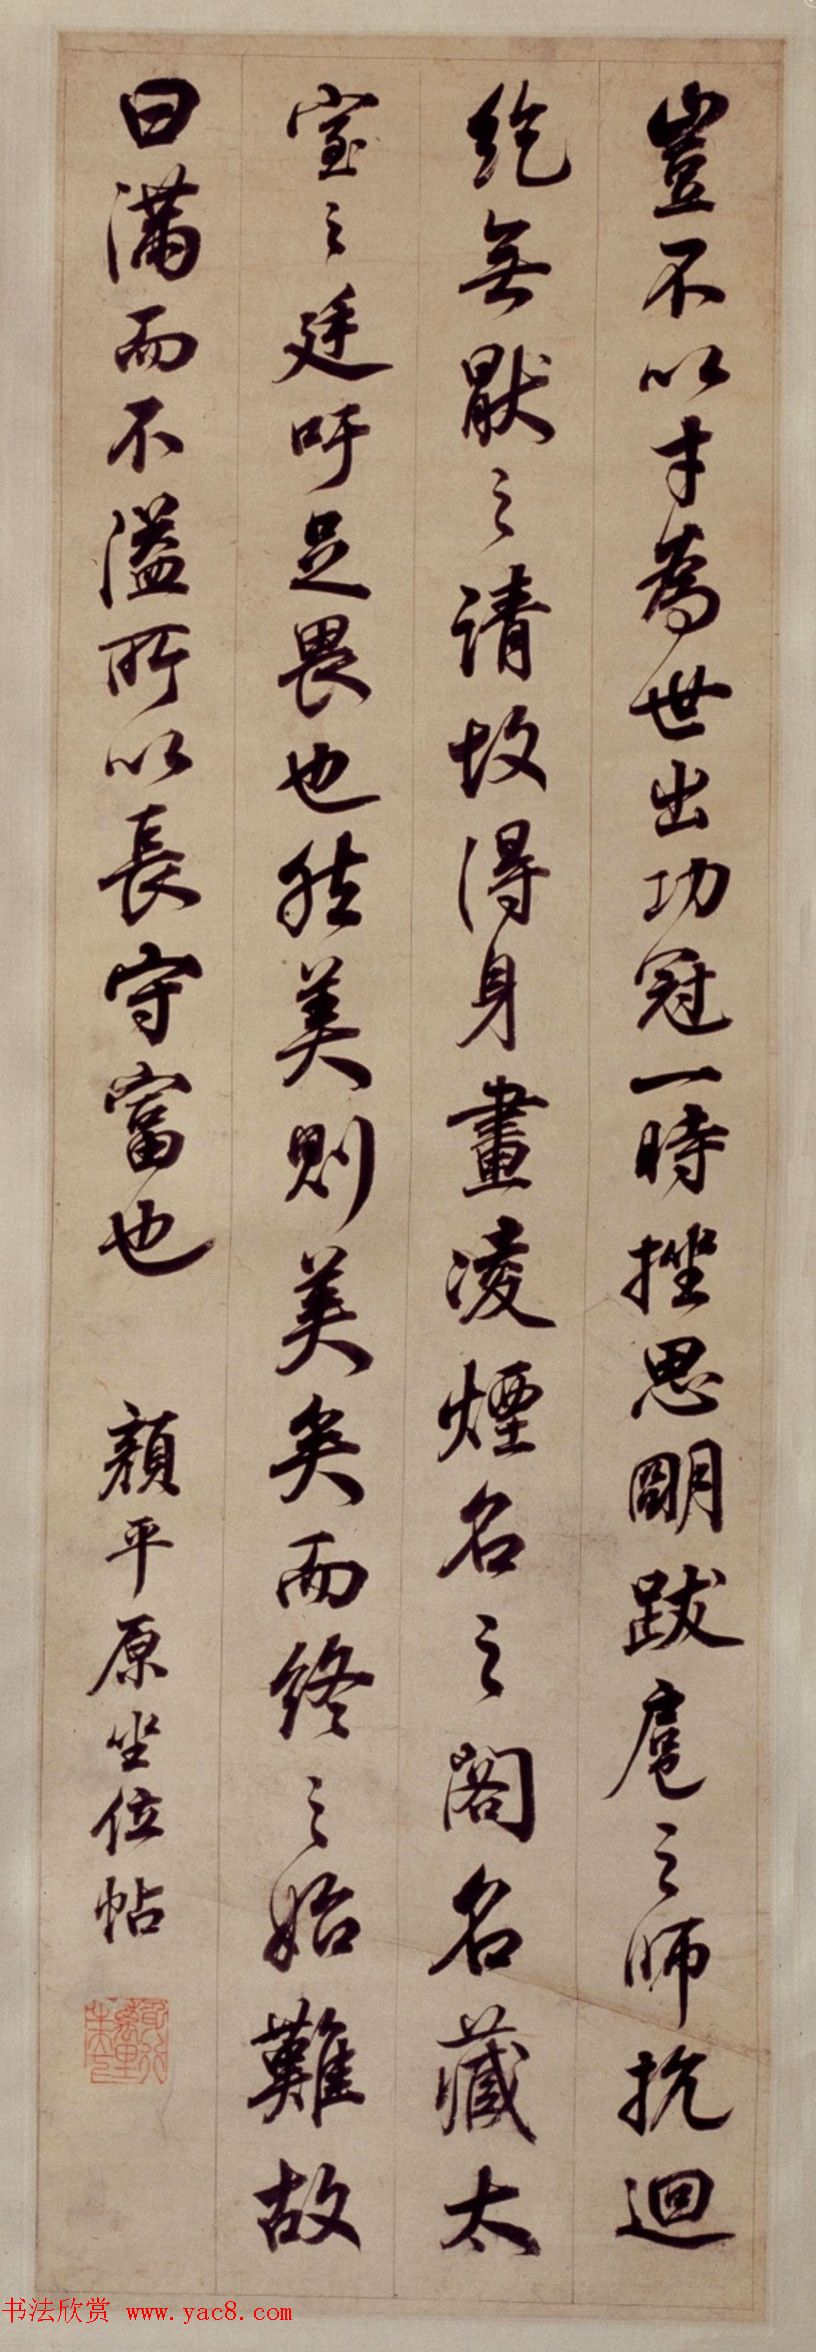 豈不以才為世出功冠一時挫思明跋扈之師抗迴
紇無厭之請故得身畫凌煙名之閣名藏太
室之廷吁足畏也然美則美矣而終之始難故
曰滿而不溢所以長守富也 顏平原坐位帖
书法欣赏 www.yac8.com